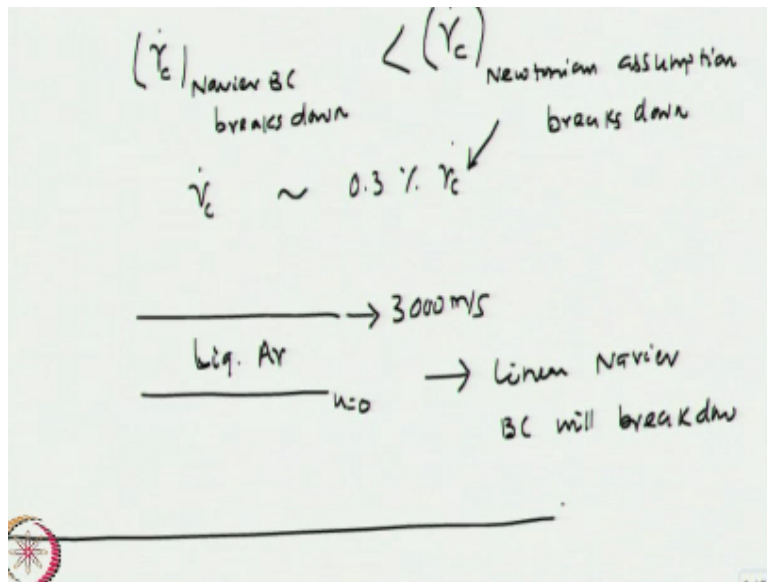 (γ̇c) Navier BC breaks down < (γ̇c) Newtonian assumption breaks down
γ̇c ~ 0.3 % γ̇c
→ 3000 m/s
Liq. Ar
u=0
→ Linear Navier
BC will breakdow